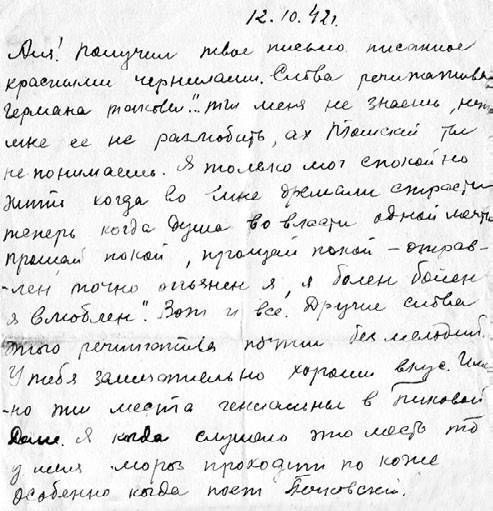 12.10.42г.
Аня! Получил твое письмо писанное
красными чернилами. Слова речитатива
Германа таковы: "Ты меня не знаешь, нет
мне ее не разлюбить, ах Томский ты
не понимаешь. Я только мог спокойно
жить когда во мне дремали страсти
теперь когда душа во власти одной мечты
прощай покой, прощай покой – отрав-
-лен точно опьянен я, я болен болен
я влюблен". Вот и все. Другие слова
этого речитатива почти без мелодий.
У тебя замечательно хороший вкус. Имен-
-но эти места гениальны в Пиковой
Даме. Я когда слушаю это место то
у меня мороз проходит по коже
особенно когда поет Печковский.